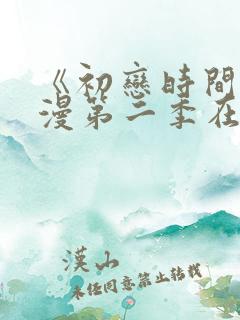 《初戀時間
漫第二季在
漢山
未经同意禁止转载